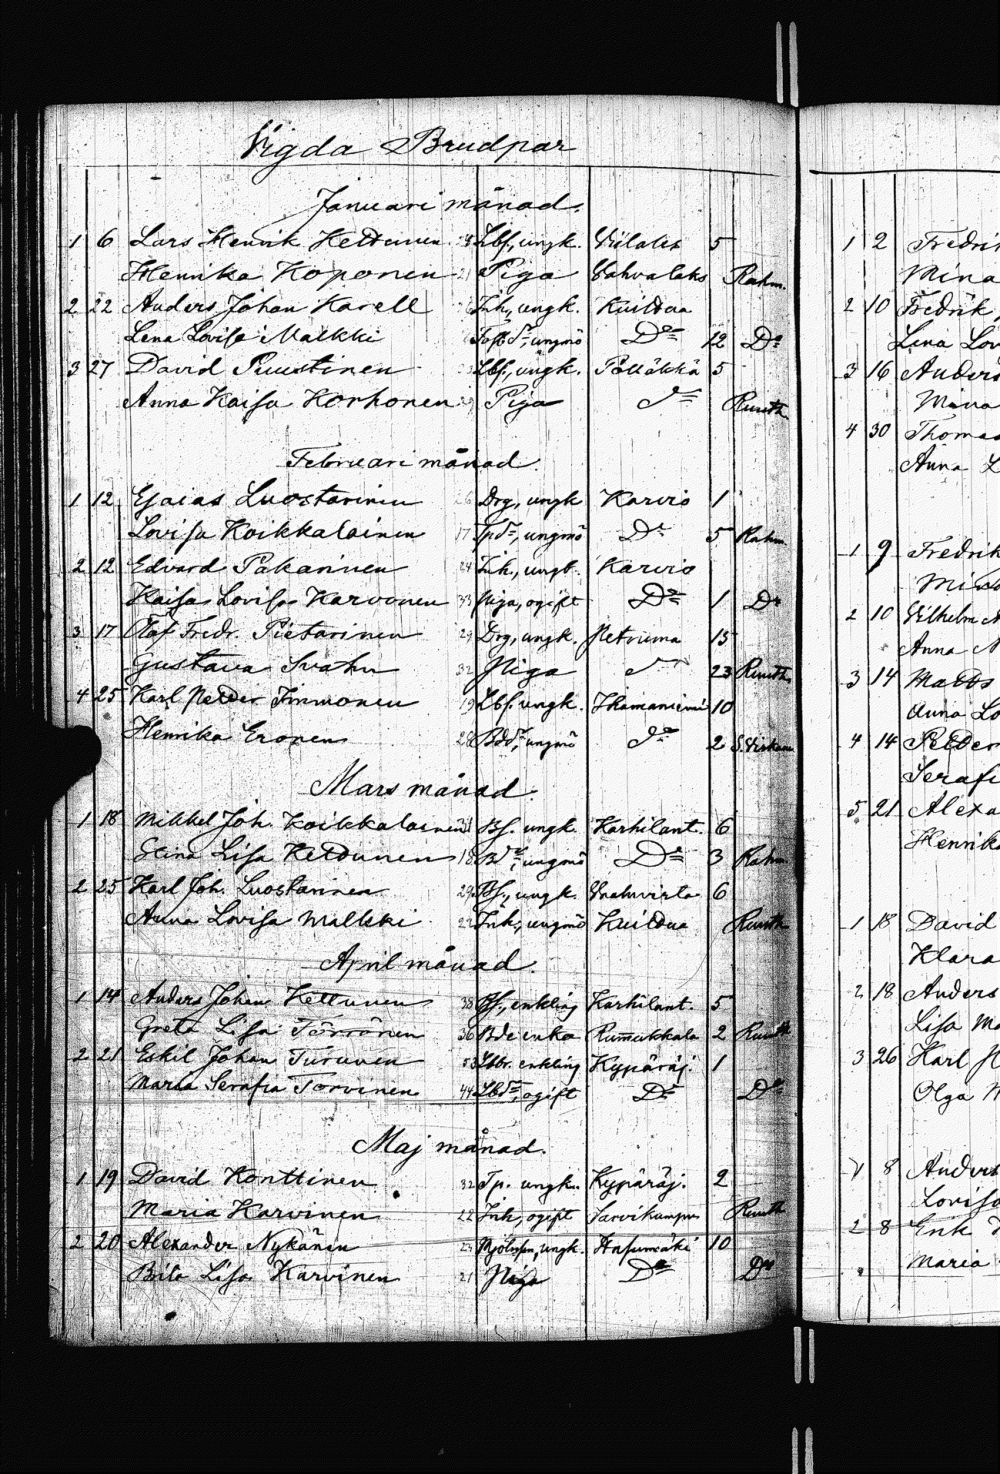 Vigda Brudpar
Januari månad.
1 6 Lars Henrik Kettunen Lbf., ungk. 5
Henrika Koponen 21 Piga Vahvalaks Rahm.
2 22 Anders Johan Karell Inh., ungk. Kuittua
Lena Lovisa Malkki ungmö Do 12 Do
3 27 David Puustinen Lbf., ungk. Pölläkkä 5
Anna Kaisa Korhonen 29 Piga do Ruuth.
Februari månad.
1 12 Esaias Luostarinen 26 Drg, ungk. Karvio 1
Lovisa Koikkalainen 17 ungmö Do 5 Rahm.
2 12 Edvard Pakarinen 24 Inh., ungk. Karvio
Kaisa Lovisa Karvonen 33 Piga, ogift Do 1 Do
3 17 Olof Fredr. Pietarinen 29 Drg, ungk. Petruma 15
Gustava Svahn 32 Piga do 23 Ruuth.
4 25 Karl Petter Immonen 19 Lbf. ungk. 10
Henrika Eronen 28 ungmö do 2
Mars månad.
1 18 Mikkel Joh. Koikkalainen Bf. ungk. Karhilant. 6
Stina Lisa Kettunen 18 ungmö Do 3 Rahm.
2 25 Karl Joh. Luostarinen 29 Bf., ungk. 6
Anna Lovisa Malkki 22 Inh., ungmö Kuittua Ruuth
April månad.
1 14 Anders Johan Kettunen 38 Bf., enkling Karhilant. 5
Greta Lisa Törrönen 36 Bde enka Rummukkala 2 Ruuth
2 21 Eskil Johan Turunen enkling Kypäräj. 1
Maria Serafia Torvinen 44 ogift Do Do
Maj månad.
1 19 David Konttinen 32 Tp. ungk. Kypäräj. 2
Maria Karvinen 22 Inh., ogift Sarvikumpu Ruuth
2 20 Alexander Nykänen ungk. 10
Brita Lisa Karvinen 21 Piga Do Do
1 2 Fredrik
Mina
2 10 Fredrik
Lena Lov
3 16 Anders
Maria
4 30 Thomas
Anna L
1 9 Fredrik
2 10 Vilhelm
Anna
3 14 Matts
Anna Lo
4 14 Petter
Serafi
5 21 Alexa
Henrika
1 18 David
Klara
2 18 Anders
Lisa Ma
3 26 Karl
Olga
1 8 Anders
Lovisa
2 8 Erik
Maria